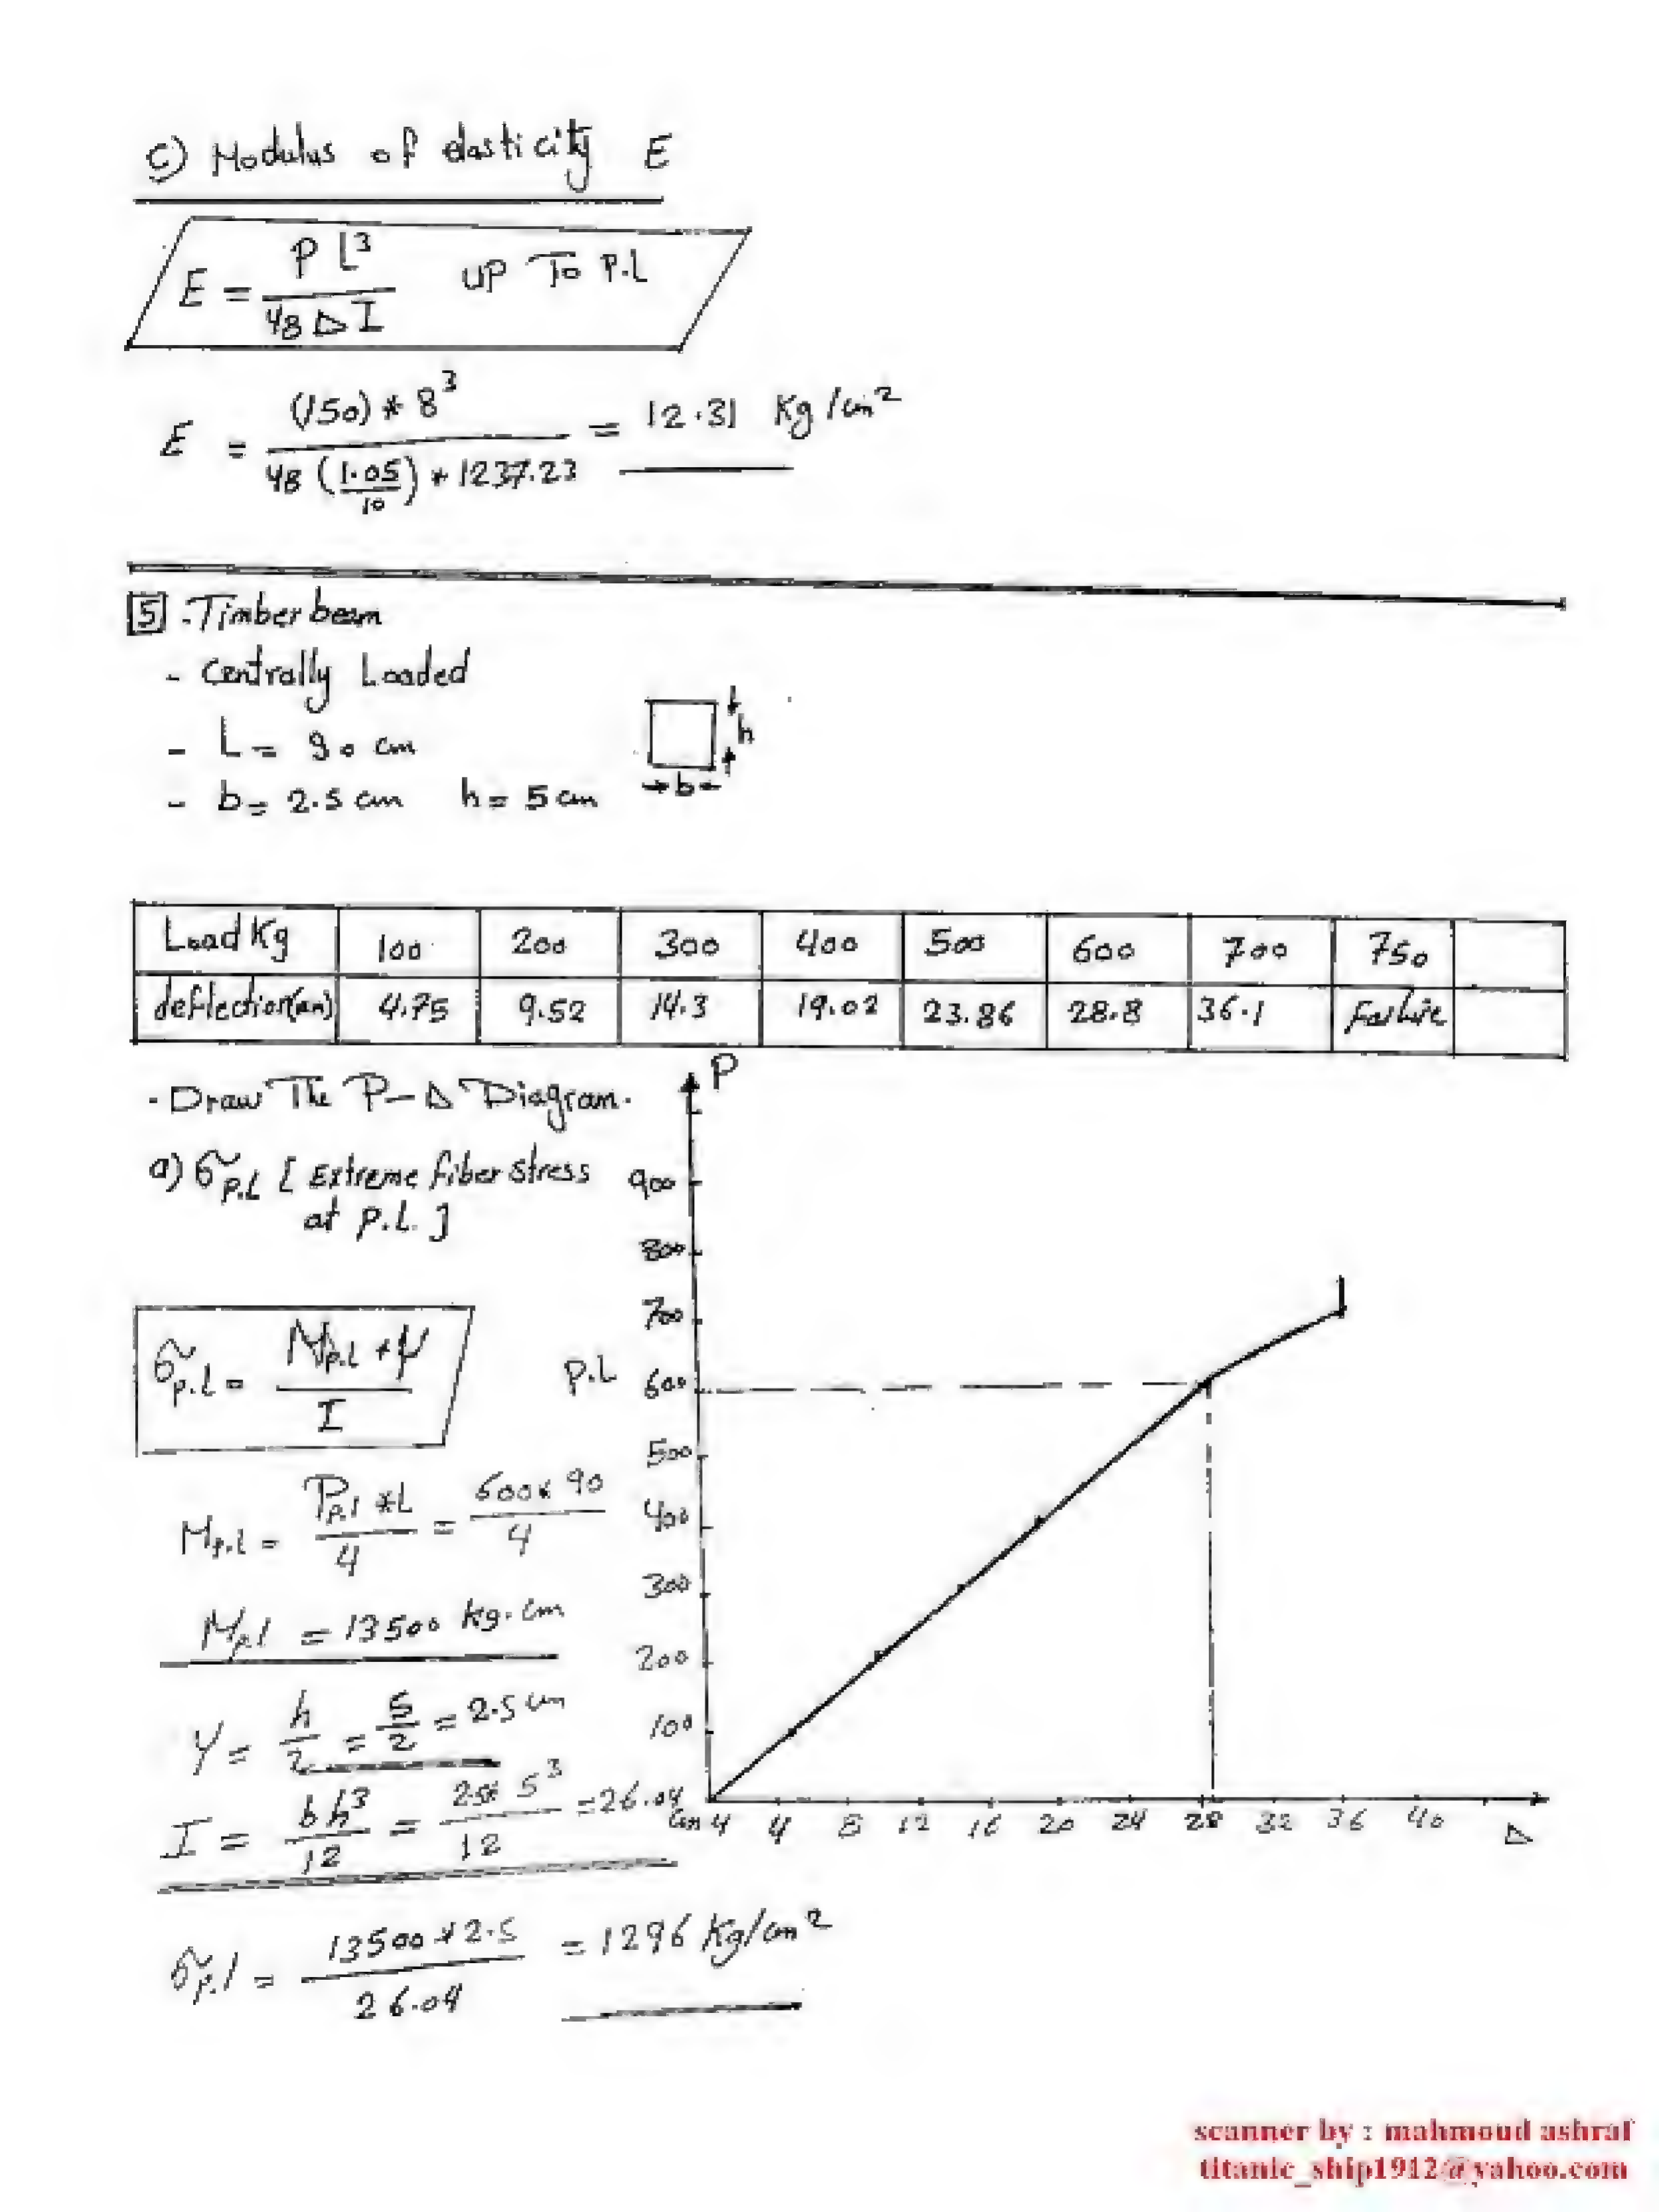 c) Modulus of elasticity E
E = P L³ / 48 Δ I UP To P.L
E = (150) * 8³ / 48 (1.05/10) * 1237.23 = 12.31 Kg/cm²
5 . Timber beam
- Centrally Loaded
- L = 90 cm
- b = 2.5 cm h = 5 cm
h
b
Load Kg 100 200 300 400 500 600 700 750
deflection(cm) 4.75 9.52 14.3 19.02 23.86 28.8 36.1 Failure
- Draw The P-Δ Diagram.
P
a) σP.L [ Extreme fiber stress
at P.L. ]
900
800
700
P.L 600
500
400
300
200
100
4 8 12 16 20 24 28 32 36 40 Δ
σP.L = MP.L * Y / I
MP.L = PP.L * L / 4 = 600 * 90 / 4
MP.L = 13500 kg.cm
Y = h/2 = 5/2 = 2.5 cm
I = bh³/12 = 2.5* 5³ / 12 = 26.04 cm4
σP.L = 13500 * 2.5 / 26.04 = 1296 Kg/cm²
scanner by : mahmoud ashraf
titanic_ship1912@yahoo.com